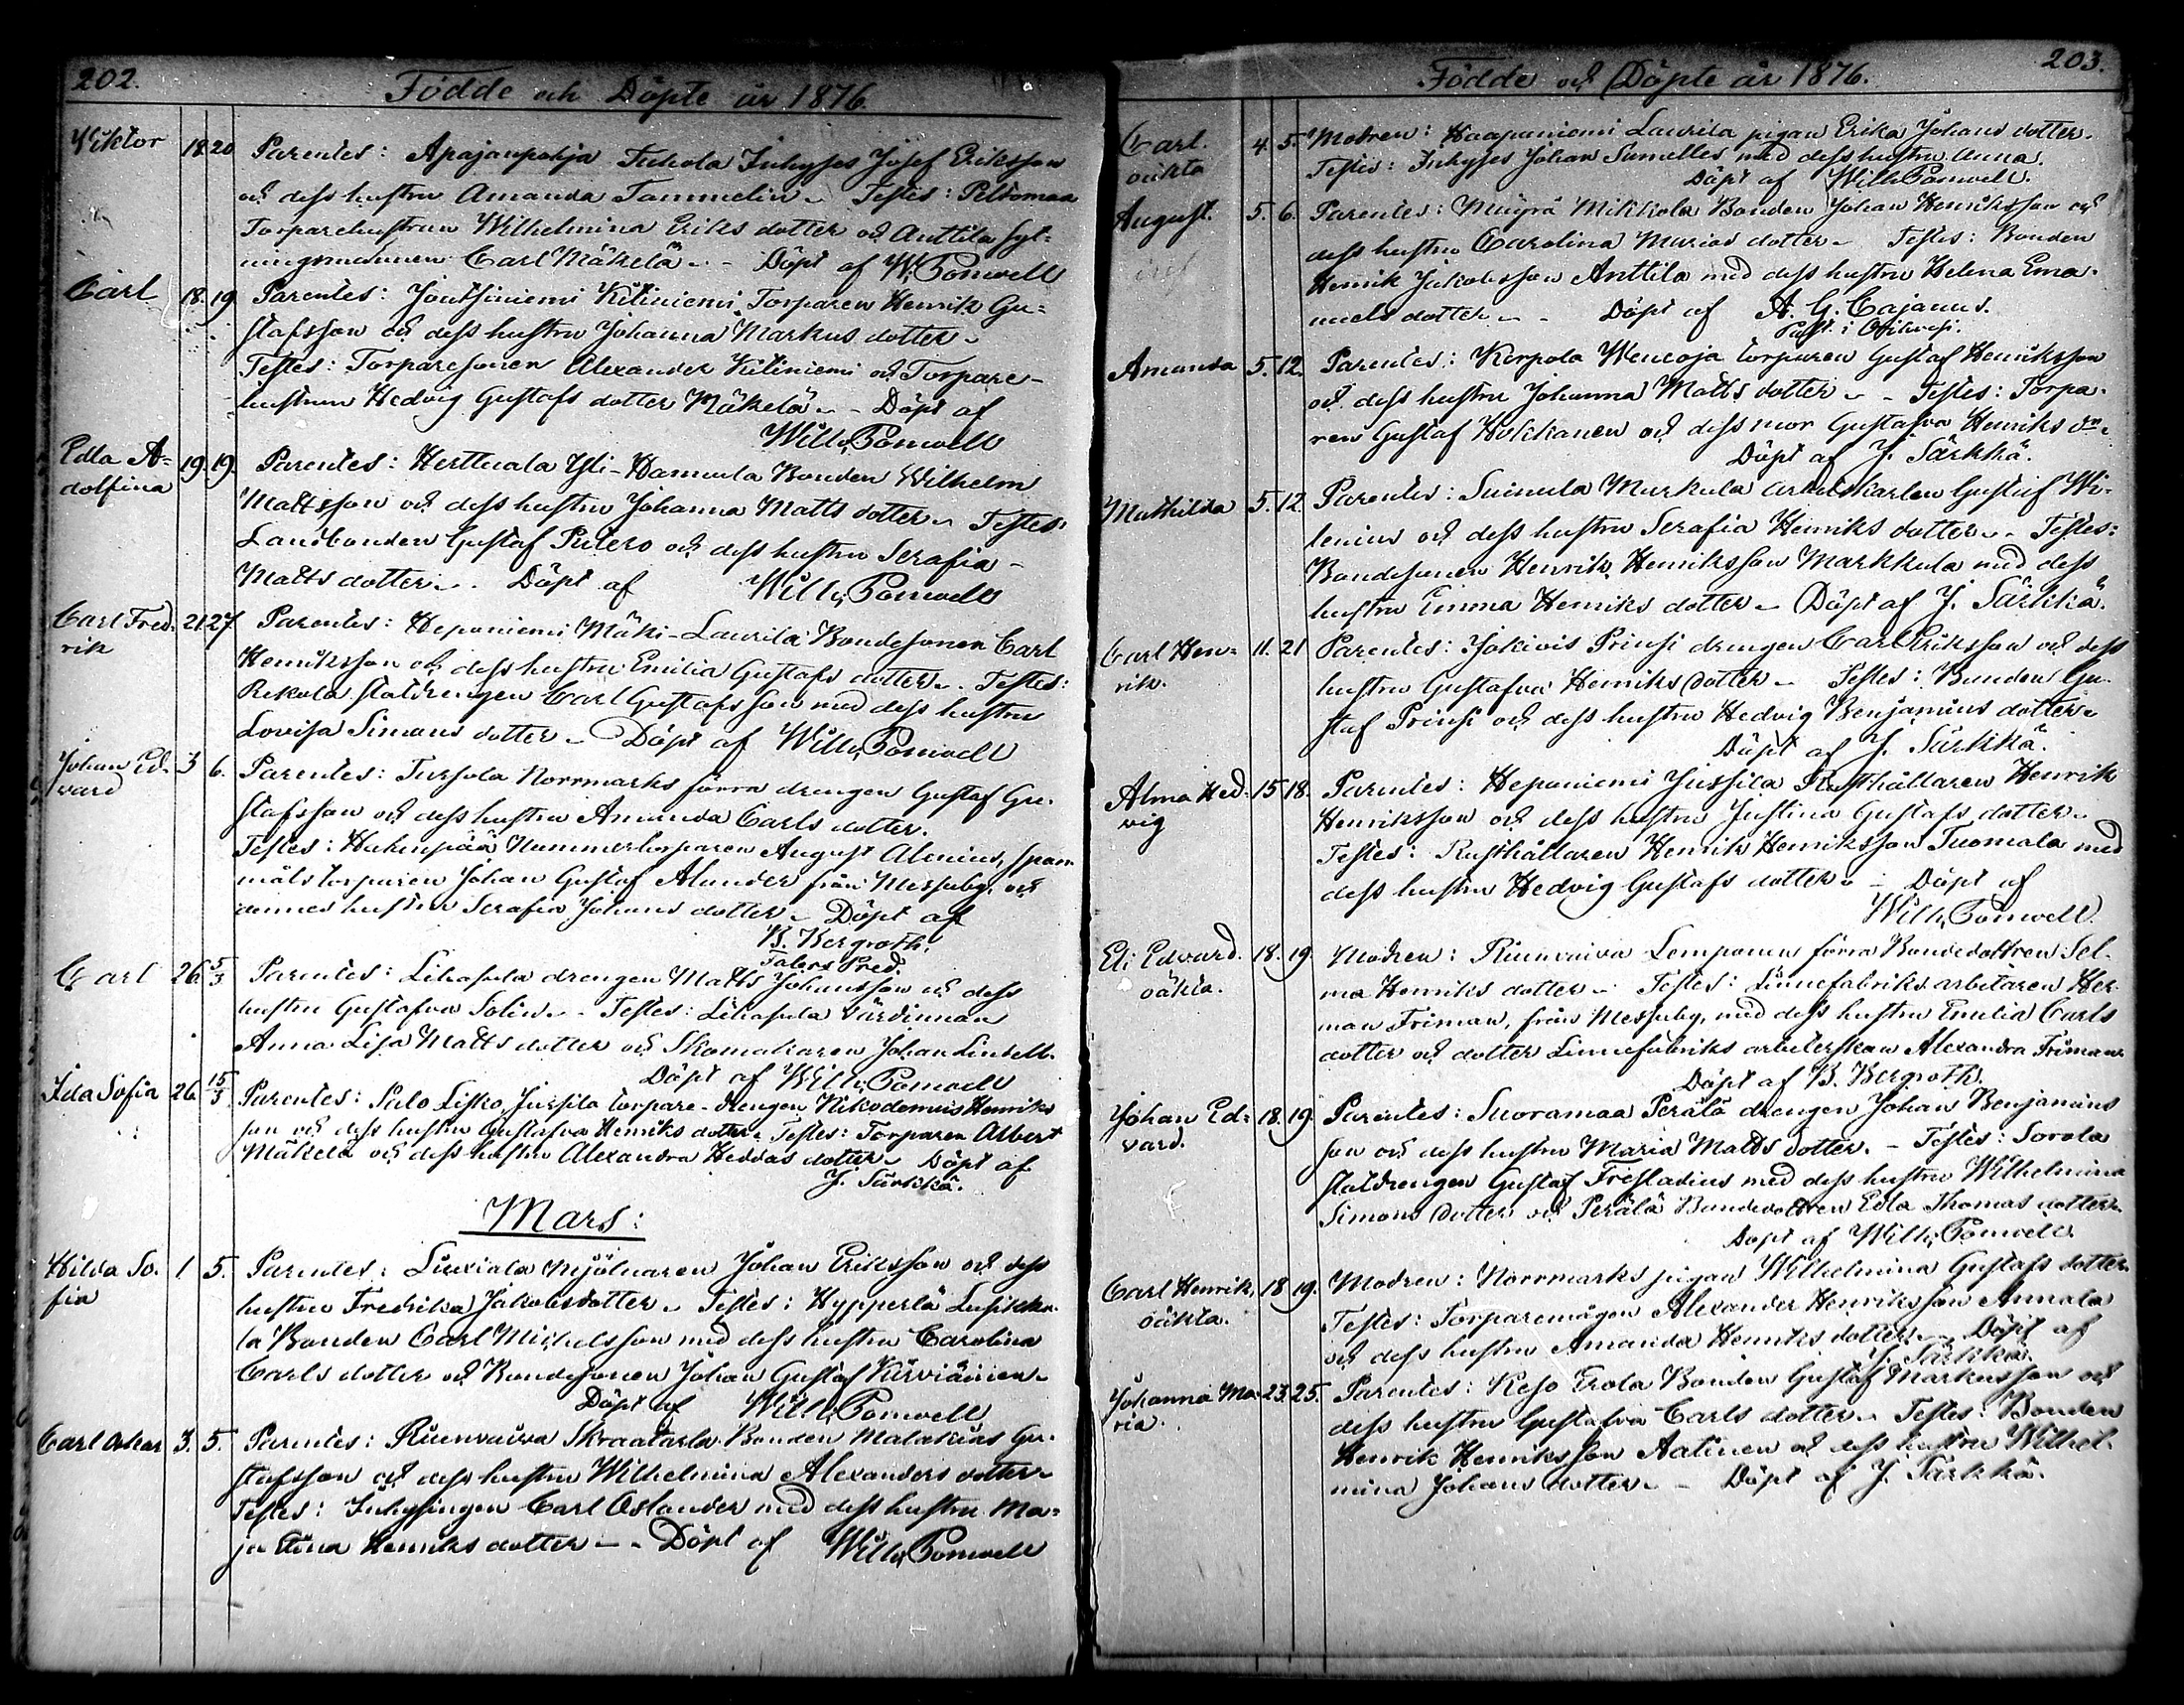 202.
Födde och Döpte år 1876.
Viktor 18. 20 Parentes: Apajanpohja Tuhola Inhyses Josef Eriksson
och dess hustru Amanda Tammelin. Testes: Peltomaa
Torparehustrun Wilhelmina Eriks dotter och Anttila
Carl Mäkelä. - Döpt af W. Pomoell
Carl 18. 19 Parentes: Joutsiniemi Kitiniemi Torparen Henrik Gu=
stafsson och dess hustru Johanna Markus dotter.
Testes: Torparesonen Alexander Kitiniemi och Torpare-
hustrun Hedvig Gustafs dotter Mäkelä. - Döpt af
Wilh. Pomoell
Edla A= 19. 19. Parentes: Herttuala Yli-Hannula Bonden Wilhelm
dolfina Mattsson och dess hustru Johanna Matts dotter. Testes:
Landbonden Gustaf Putero och dess hustru Serafia
Matts dotter. Döpt af Wilh. Pomoell
Carl Fred= 21. 27 Parentes: Heponiemi Mäki-Laurila Bondesonen Carl
rik Henriksson och dess hustru Emilia Gustafs dotter. Testes:
Rekola staldrengen Carl Gustafsson med dess hustru
Lovisa Simons dotter. Döpt af Wilh. Pomoell
Johan Ed- 3 6. Parentes: Tursola Norrmarks förra drengen Gustaf Gu-
vard stafsson och dess hustru Amanda Carls dotter.
Testes: Nummertorparen August Alenius, spann
måls torparen Johan Gustaf Alander från Messuby, och
dennes hustru Serafia Johans dotter. Döpt af
B. Bergroth.
Pred.
Carl 26. 5/3 Parentes: Lihasula drengen Matts Johansson och dess
hustru Gustafva Solin. - Testes: Lihasula värdinnan
Anna Lisa Matts dotter och Skomakaren Johan Lindell.
Döpt af Wilh. Pomoell
Ida Sofia 26. 15/3 Parentes: Salo Lisko, Jussila torpare-drengen Nikodemus Henriks
son och dess hustru Gustafva Henriks dotter. Testes: Torparen Albert
Mäkelä och dess hustru Alexandra Heddas dotter. Döpt af
J. Särkkä.
Mars:
Hilda So- 1 5. Parentes: Liuxiala Mjölnaren Johan Eriksson och dess
fia hustru Fredrika Jakobsdotter. Testes: Hypperlä
la Bonden Carl Michelsson med dess hustru Carolina
Carls dotter och Bondesonen Johan Gustaf
Döpt af Wilh. Pomoell
Carl Oskar 3. 5. Parentes: Riuenvaiva Skraatarla Bonden Malakias Gu-
stafsson och dess hustru Wilhelmina Alexanders dotter.
Testes: Inhysingen Carl Oslander med dess hustru Ma=
ja Stina Henriks dotter. - Döpt af Wilh. Pomoell
203.
Födde och Döpte år 1876.
Carl. 4. 5. Modren: Haapaniemi Laurila pigan Erika Johans dotter.
oäkta Testes: Inhyses Johan Sumelles med dess hustru Anna.
Döpt af Wilh. Pomoell.
August. 5. 6. Parentes: Mäyrä Mikkola Bonden Johan Henriksson och
dess hustru Carolina Marias dotter. Testes: Bonden
Henrik Jakobsson Anttila med dess hustru Helena Ema-
nuels dotter. - Döpt af A. G. Cajanus.
Past. i Orihvesi.
Amanda 5. 12. Parentes: Kerpola Wencoja torparen Gustaf Henriksson
och dess hustru Johanna Matts dotter. - Testes: Torpa-
ren Gustaf Hokkanen och dess mor Gustafva Henriks dr.
Döpt af J. Särkkä.
Mathilda 5. 12. Parentes: Suinula Markula arbetskarlen Gustaf Wi-
lenius och dess hustru Serafia Henriks dotter. - Testes:
Bondesonen Henrik Henriksson Markkula med dess
hustru Emma Henriks dotter. Döpt af J. Särkkä.
Carl Hen= 11. 21 Parentes: Jokiois Prinsi drengen Carl Eriksson och dess
rik. hustru Gustafva Henriks dotter. Testes: Bonden Gu-
staf Prinsi och dess hustru Hedvig Benjamins dotter.
Döpt af J. Särkkä.
Alma Hed- 15 18. Parentes: Heponiemi Jussila Rusthållaren Henrik
vig Henriksson och dess hustru Justina Gustafs dotter.
Testes: Rusthållaren Henrik Henriksson Tuomala med
dess hustru Hedvig Gustafs dotter. - Döpt af
Wilh. Pomoell.
Eli Edvard. 18. 19. Modren: Riuenvaiva Lemponen förra Bondedottren Sel-
oäkta. ma Henriks dotter. Testes: Linnefabriks arbetaren Her-
man Friman, från Messuby, med dess hustru Emilia Carls
dotter och dotter Linnefabriks arbeterskan Alexandra Friman.
Döpt af B. Bergroth.
Johan Ed= 18. 19. Parentes: Suoramaa Perälä drengen Johan Benjamins
vard. son och dess hustru Maria Matts dotter. - Testes: Sorola
staldrengen Gustaf Fristadius med dess hustru Wilhelmina
Simons dotter och Perälä Bondedottren Edla Thomas dotter.
Döpt af Wilh. Pomoell.
Carl Henrik, 18 19. Modren: Norrmarks pigan Wilhelmina Gustafs dotter.
oäkta. Testes: Torparemågen Alexander Henriksson Annala
och dess hustru Amanda Henriks dotter. - Döpt af
J. Särkkä.
Johanna Ma- 23. 25. Parentes: Keso Erola Bonden Gustaf Markusson och
ria. dess hustru Gustafva Carls dotter. Testes: Bonden
Henrik Henriksson Aatinen och dess hustru Wilhel-
mina Johans dotter. - Döpt af J. Särkkä.